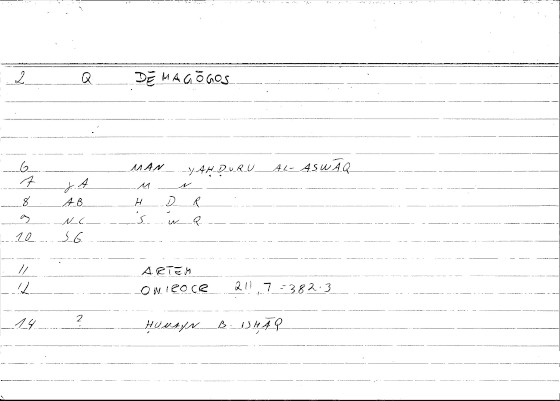 2 Q DĒMAGŌGOS
6 MAN YAḤḌURU AL-ASWĀQ
7 γA M N
8 AB Ḥ Ḍ R
9 NC S W Q
10 SG
11 ARTEM
12 ONIROCR 211,7 = 382.3
14 ? ḤUNAYN B. ISḤĀQ